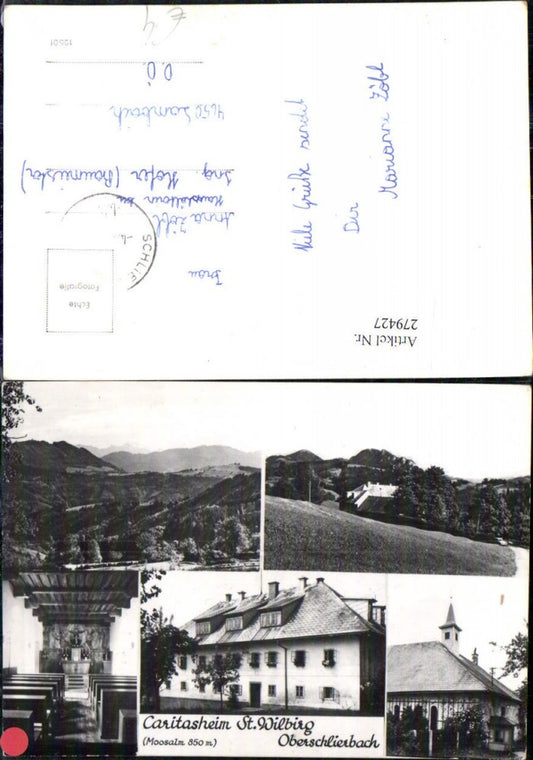 Viele Grüße sendet
Dir
Marianne Zöbl
Frau
Anna Zöbl
Ing. Hofer (Baumeister)
4650 Lambach
O.Ö.
SCHLIE
Echte
Fotografie
10601
€ 4
Artikel Nr.
279427
Caritasheim St. Wilbirg
(Moosalm 850 m) Oberschlierbach